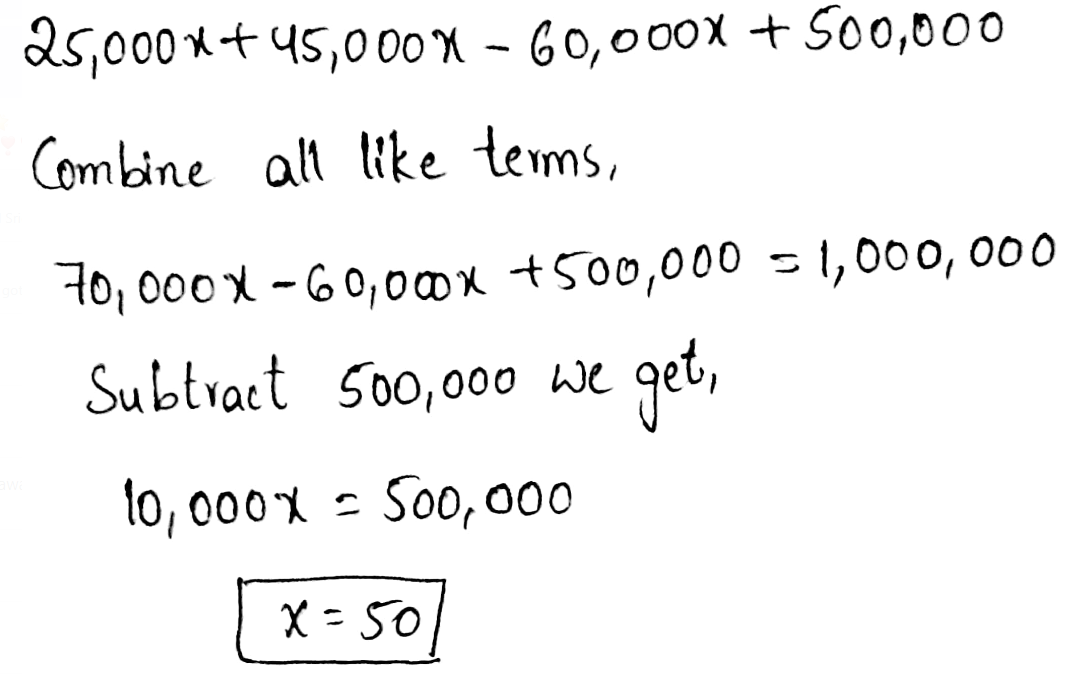 25,000x + 45,000x - 60,000x + 500,000
Combine all like terms,
70,000x - 60,000x + 500,000 = 1,000,000
Subtract 500,000 we get,
10,000x = 500,000
x = 50